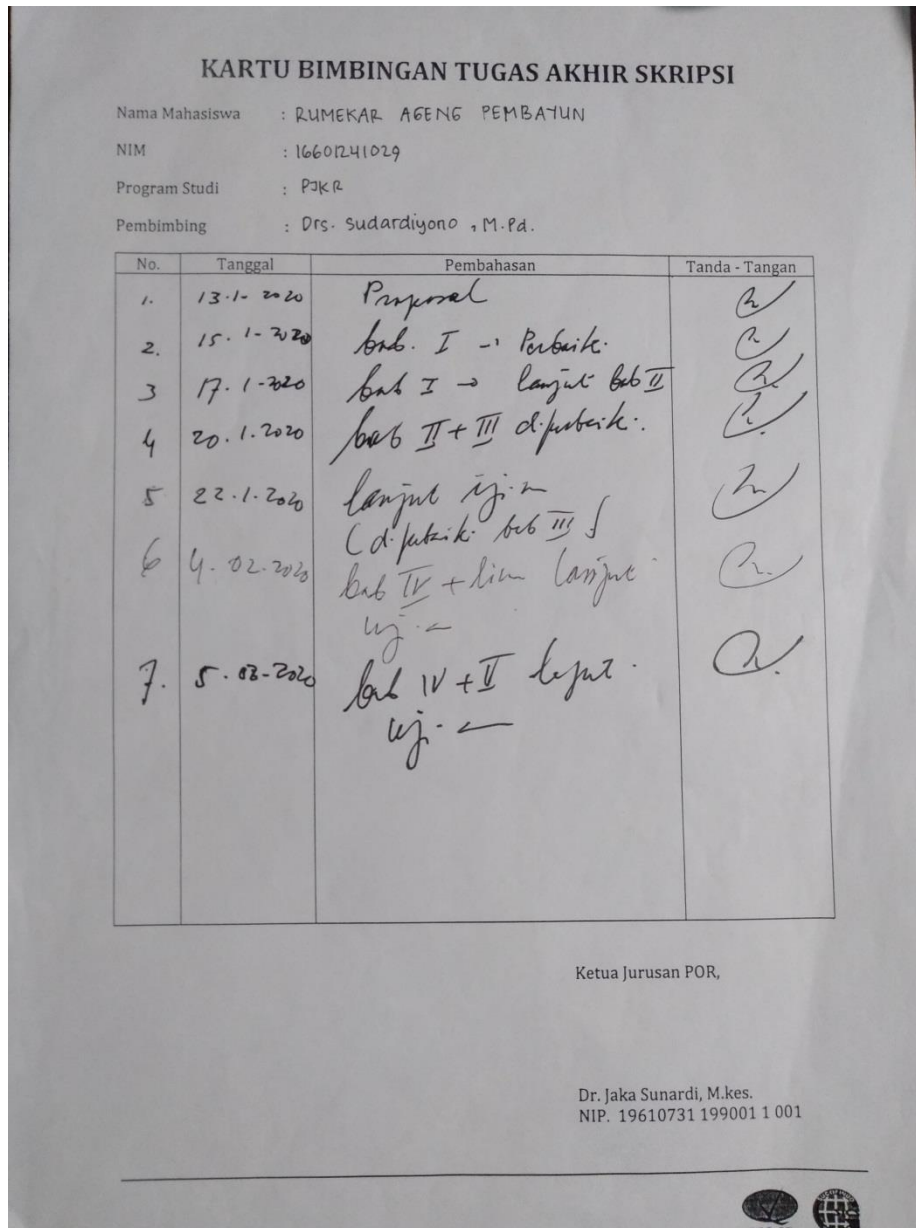 KARTU BIMBINGAN TUGAS AKHIR SKRIPSI
Nama Mahasiswa : RUMEKAR AGENG PEMBAYUN
NIM : 16601241029
Program Studi : PJKR
Pembimbing : Drs. Sudardiyono, M.Pd.
No. Tanggal Pembahasan Tanda - Tangan
1. 13-1-2020 Proposal
2. 15.1-2020 bab. I → Perbaiki.
3 17.1-2020 bab I → lanjut bab II
4 20.1.2020 bab II + III diperbaiki.
5 22.1.2020 lanjut
(diperbaiki bab III)
6 4.02.2020 bab IV + lanjut
7. 5.03-2020 bab IV +
Ketua Jurusan POR,
Dr. Jaka Sunardi, M.kes.
NIP. 19610731 199001 1 001